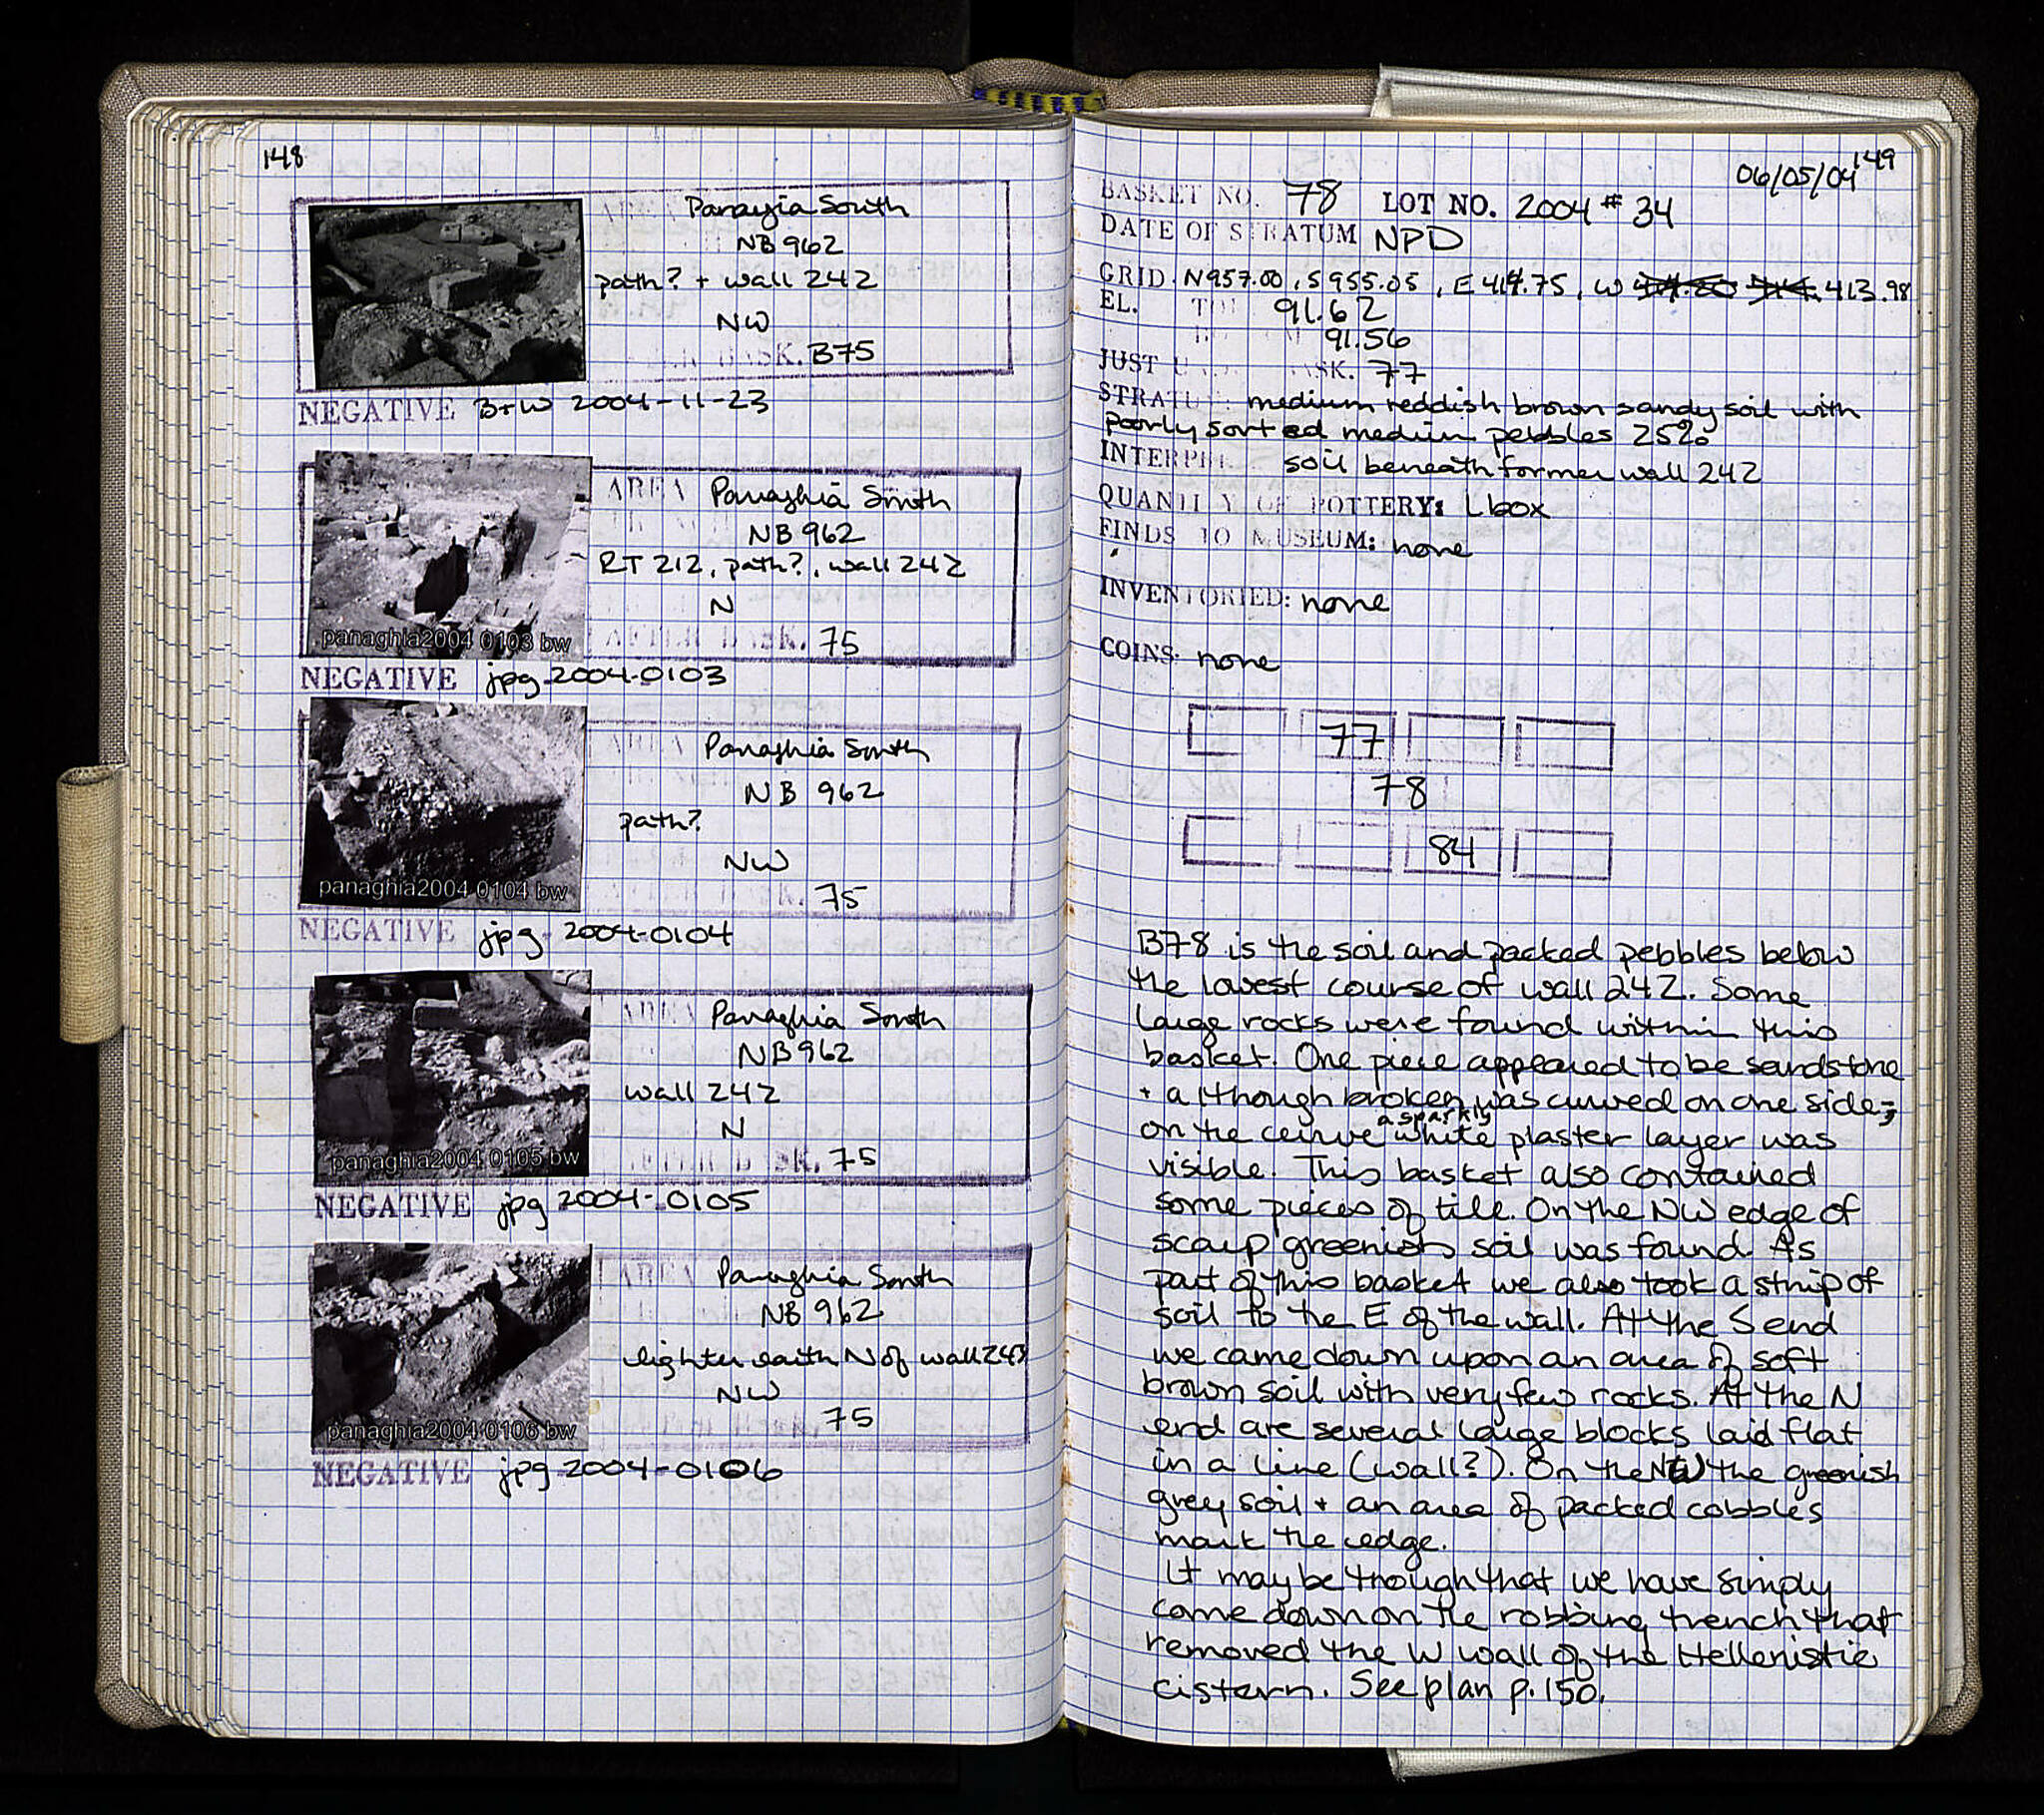 148
Panayia South
NB 962
path? + wall 242
NW
BASK. B75
NEGATIVE B+W 2004-11-23
AREA Panaghia South
NB 962
RT 212, path?, wall 242
N
AFTER BASK. 75
panaghia2004 0103 bw
NEGATIVE jpg-2004-0103
AREA Panaghia South
NB 962
path?
NW
BASK. 75
panaghia2004 0104 bw
NEGATIVE jpg-2004-0104
AREA Panaghia South
NB 962
wall 242
N
AFTER BASK. 75
panaghia2004 0105 bw
NEGATIVE jpg 2004-0105
AREA Panaghia South
NB 962
lighter earth N of wall 243
NW
75
panaghia2004 0106 bw
NEGATIVE jpg-2004-0106
149
06/05/04
BASKET NO. 78 LOT NO. 2004 # 34
DATE OF STRATUM NPD
GRID N957.00, S955.05, E414.75, W 413.98
EL. 91.62
91.56
JUST U BASK. 77
STRATUM: medium reddish brown sandy soil with
poorly sorted medium pebbles 25%
INTERPRE soil beneath former wall 242
QUANTITY OF POTTERY: L box
FINDS TO MUSEUM: none
INVENTORIED: none
COINS: none
77
78
84
B78 is the soil and packed pebbles below
the lowest course of wall 242. Some
large rocks were found within this
basket. One piece appeared to be sandstone
+ although broken was curved on one side;
on the curve a sparkly white plaster layer was
visible. This basket also contained
some pieces of tile. On the NW edge of
scarp greenish soil was found. As
part of this basket we also took a strip of
soil to the E of the wall. At the S end
we came down upon an area of soft
brown soil with very few rocks. At the N
end are several large blocks laid flat
in a line (wall?). On the NW the greenish
grey soil + an area of packed cobbles
mark the edge.
It may be though that we have simply
come down on the robbing trench that
removed the W wall of the Hellenistic
cistern. See plan p. 150.